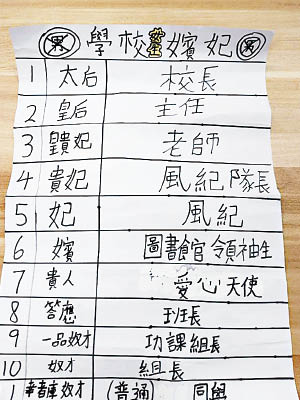 男 學校 嬪妃 男
1 太后 校長
2 皇后 主任
3 皇貴妃 老師
4 貴妃 風紀隊長
5 妃 風紀
6 嬪 圖書館官領袖生
7 貴人 愛心天使
8 答應 班長
9 一品奴才 功課組長
10 奴才 組長
1 辛者庫奴才 (普通 同學